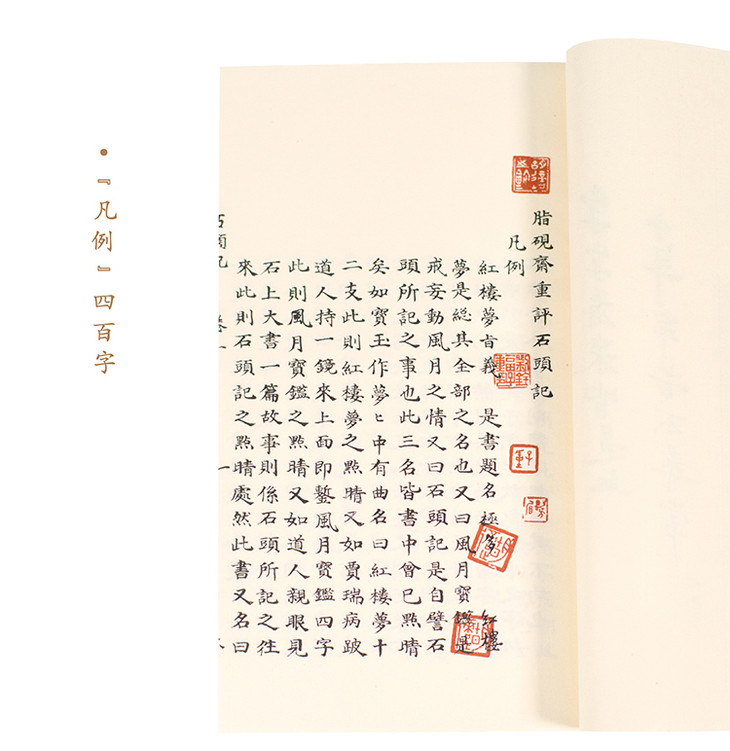 『凡例』四百字
脂硯齋重評石頭記
凡例
紅樓夢旨義 是書題名極多 紅樓
夢是総其全部之名也又曰風月寶鑑是
戒妄動風月之情又曰石頭記是自譬石
頭所記之事也此三名皆書中曾已㸃晴
矣如寶玉作夢〻中有曲名曰紅樓夢十
二支此則紅樓夢之㸃晴又如賈瑞病跛
道人持一鏡來上面即鏨風月寶鑑四字
此則風月寶鑑之㸃晴又如道人親眼見
石上大書一篇故事則係石頭所記之徃
來此則石頭記之㸃晴處然此書又名曰
石頭記 卷一 一